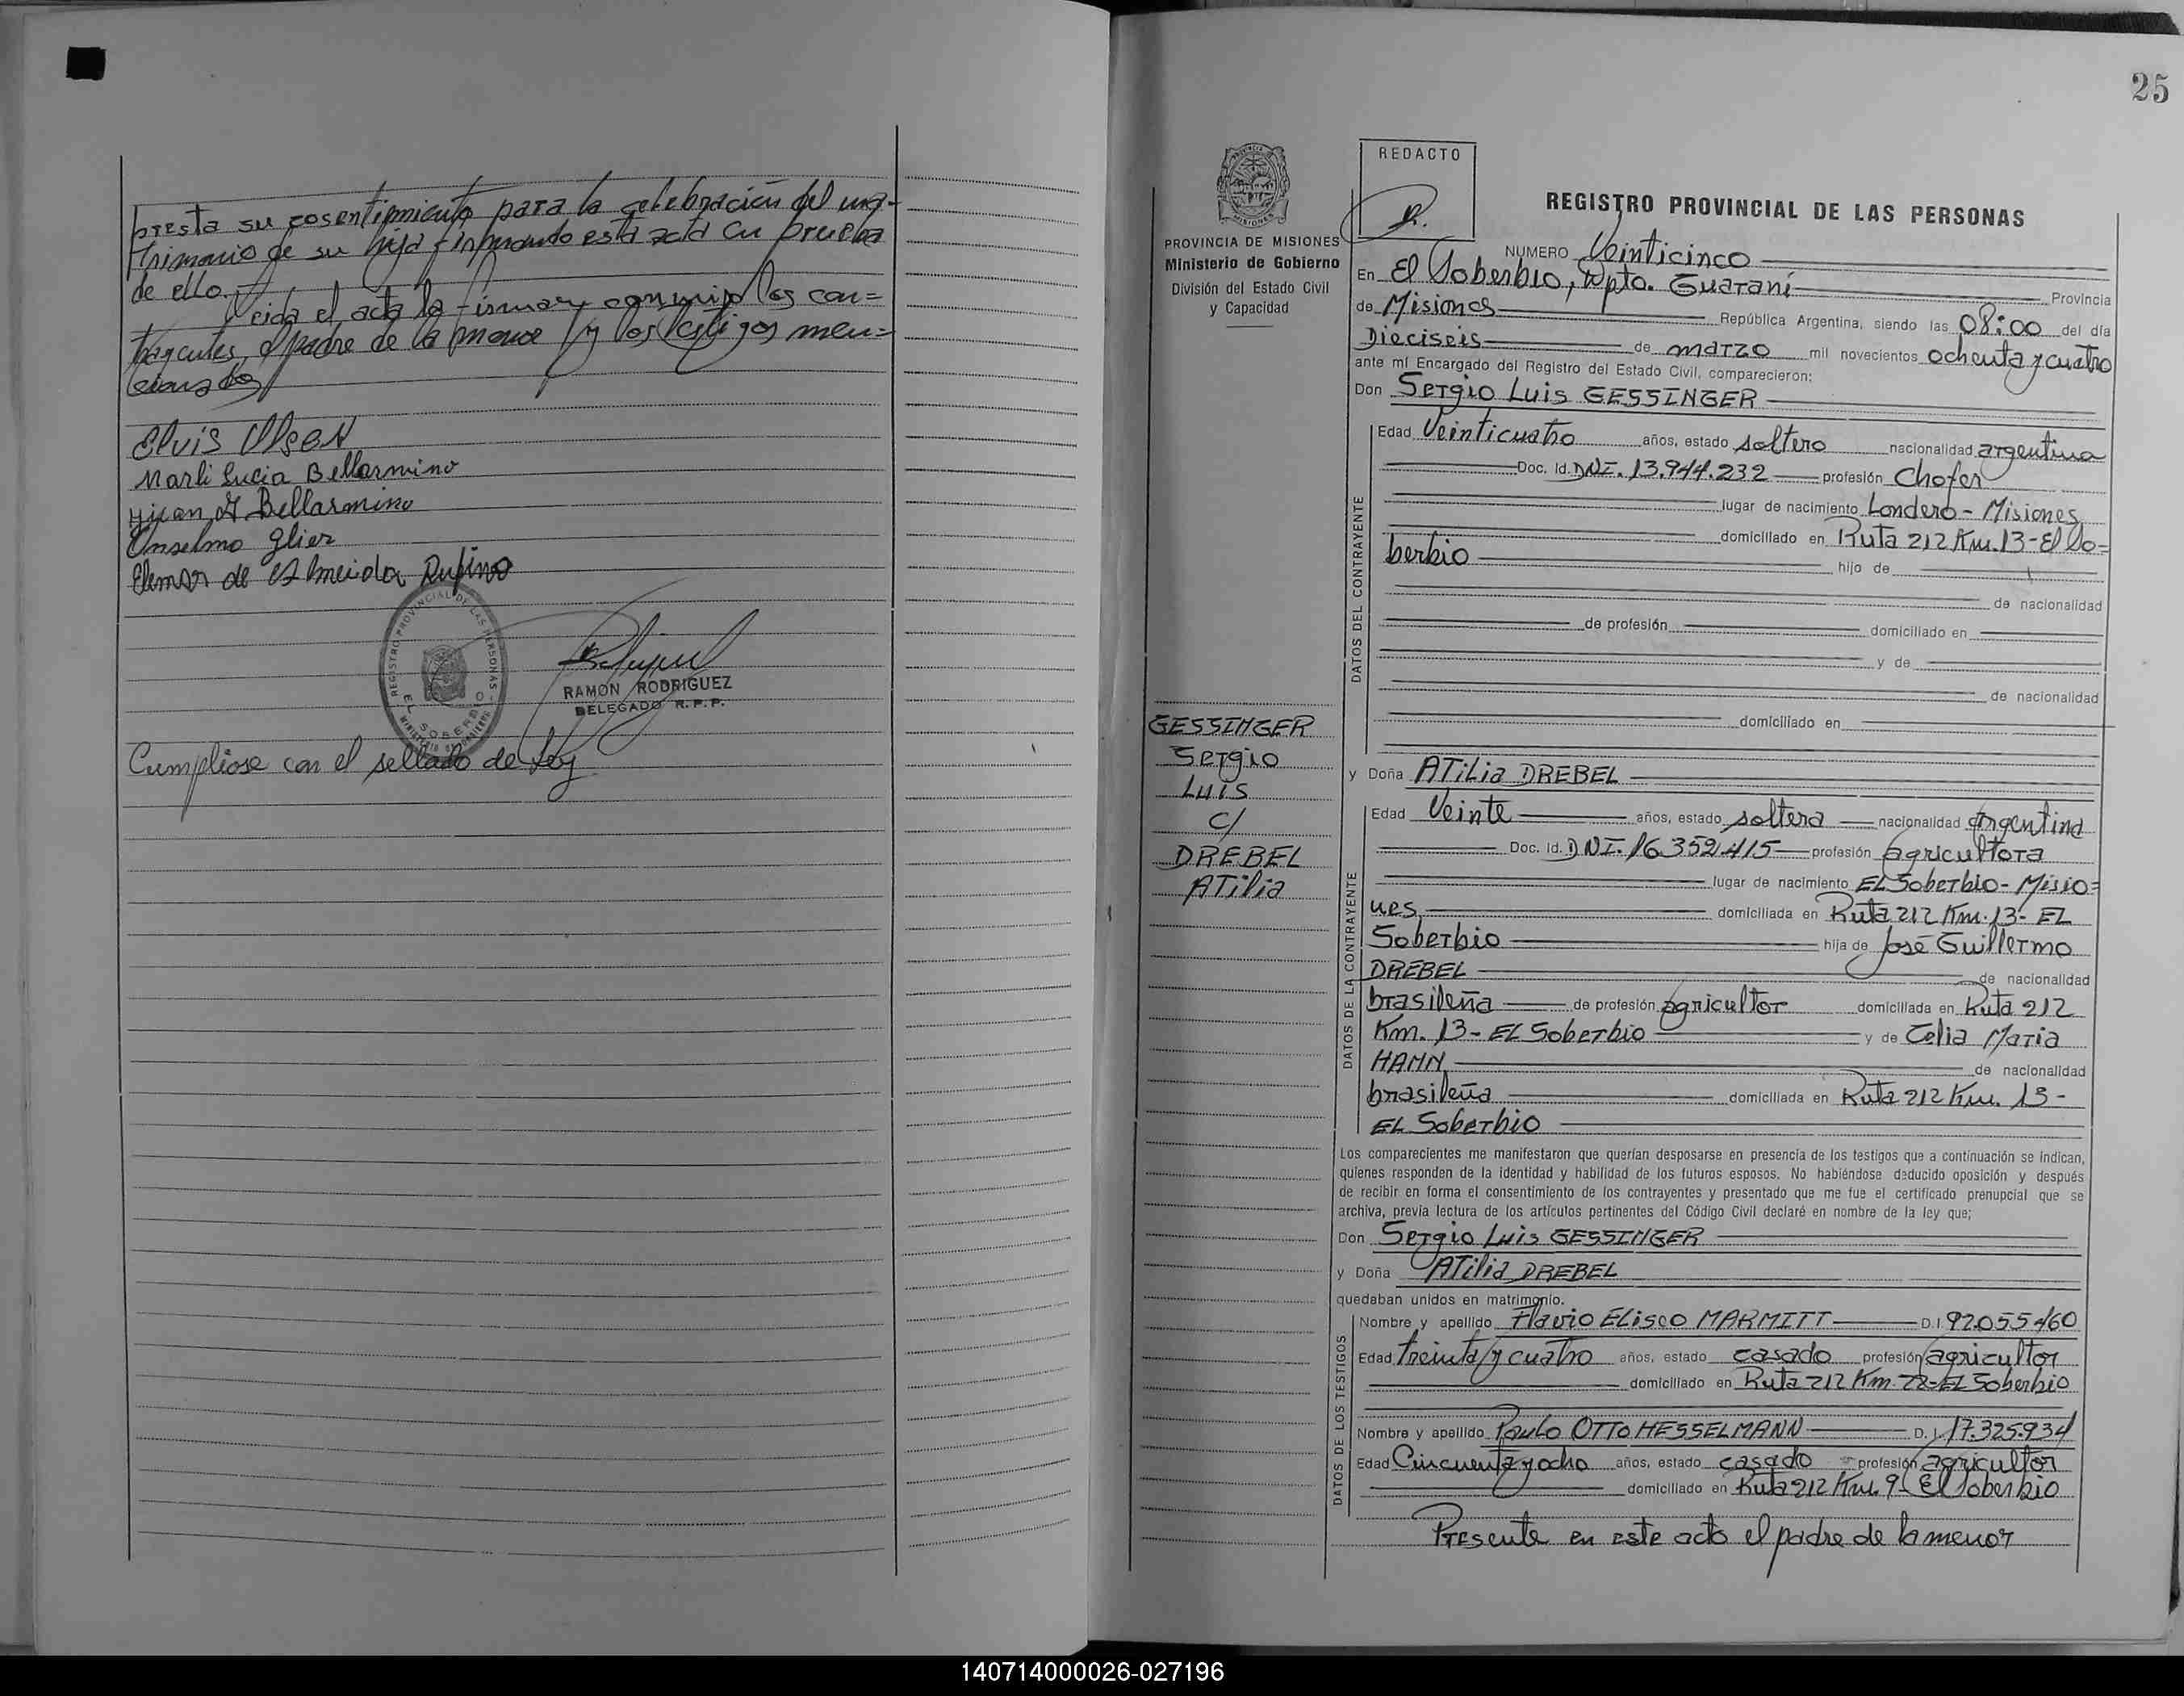 presta su cosentipmiento para la celebración del ma-
trimonio de su hija firmando esta acta en prueba
de ello.
Leida el acta la firman conmigo los con=
trayentes, el padre de la menor y los testigos men=
cionados
Elvis Olsen
Marli Lucia Bellarmino
Juan J. Bellarmino
Anselmo Glier
Elemar de Almeida Rufino
REGISTRO PROVINCIAL DE LAS PERSONAS
EL SOBERBIO
MINISTERIO DE GOBIERNO
RAMON RODRIGUEZ
DELEGADO R.P.P.
Cumpliose con el sellado de Ley
25
PROVINCIA DE MISIONES
Ministerio de Gobierno
División del Estado Civil
y Capacidad
REDACTO
REGISTRO PROVINCIAL DE LAS PERSONAS
NUMERO Veinticinco
En El Soberbio, Dpto. Guaraní Provincia
de Misiones República Argentina, siendo las 08:00 del día
Dieciseis de marzo mil novecientos ochenta y cuatro
ante mí Encargado del Registro del Estado Civil, comparecieron:
Don Sergio Luis GESSINGER
DATOS DEL CONTRAYENTE
Edad Veinticuatro años, estado soltero nacionalidad argentina
Doc. Id. DNI. 13.944.232 profesión Chofer
lugar de nacimiento Londero - Misiones
domiciliado en Ruta 212 Km. 13 - El So-
berbio hijo de
de nacionalidad
de profesión domiciliado en
y de
de nacionalidad
domiciliado en
GESSINGER
Sergio
Luis
C/
DREBEL
Atilia
y Doña Atilia DREBEL
DATOS DE LA CONTRAYENTE
Edad Veinte años, estado soltera nacionalidad argentina
Doc. Id. DNI. 16.352.415 profesión agricultora
lugar de nacimiento EL Soberbio - Misio=
nes domiciliada en Ruta 212 Km. 13 - EL
Soberbio hija de José Guillermo
DREBEL de nacionalidad
brasileña de profesión agricultor domiciliada en Ruta 212
Km. 13 - EL Soberbio y de Celia Maria
HAHN de nacionalidad
brasileña domiciliada en Ruta 212 Km. 13 -
EL Soberbio
Los comparecientes me manifestaron que querían desposarse en presencia de los testigos que a continuación se indican,
quienes responden de la identidad y habilidad de los futuros esposos. No habiéndose deducido oposición y después
de recibir en forma el consentimiento de los contrayentes y presentado que me fue el certificado prenupcial que se
archiva, previa lectura de los artículos pertinentes del Código Civil declaré en nombre de la ley que;
Don Sergio Luis GESSINGER
y Doña Atilia DREBEL
quedaban unidos en matrimonio.
DATOS DE LOS TESTIGOS
Nombre y apellido Flavio Eliseo MARMITT D.I. 92.055.460
Edad treinta y cuatro años, estado casado profesión agricultor
domiciliado en Ruta 212 Km. 22 - EL Soberbio
Nombre y apellido Paulo OTTO HESSELMANN D.I. 17.325.934
Edad Cincuenta y ocho años, estado casado profesión agricultor
domiciliado en Ruta 212 Km. 9 - El Soberbio
Presente en este acto el padre de la menor
140714000026-027196